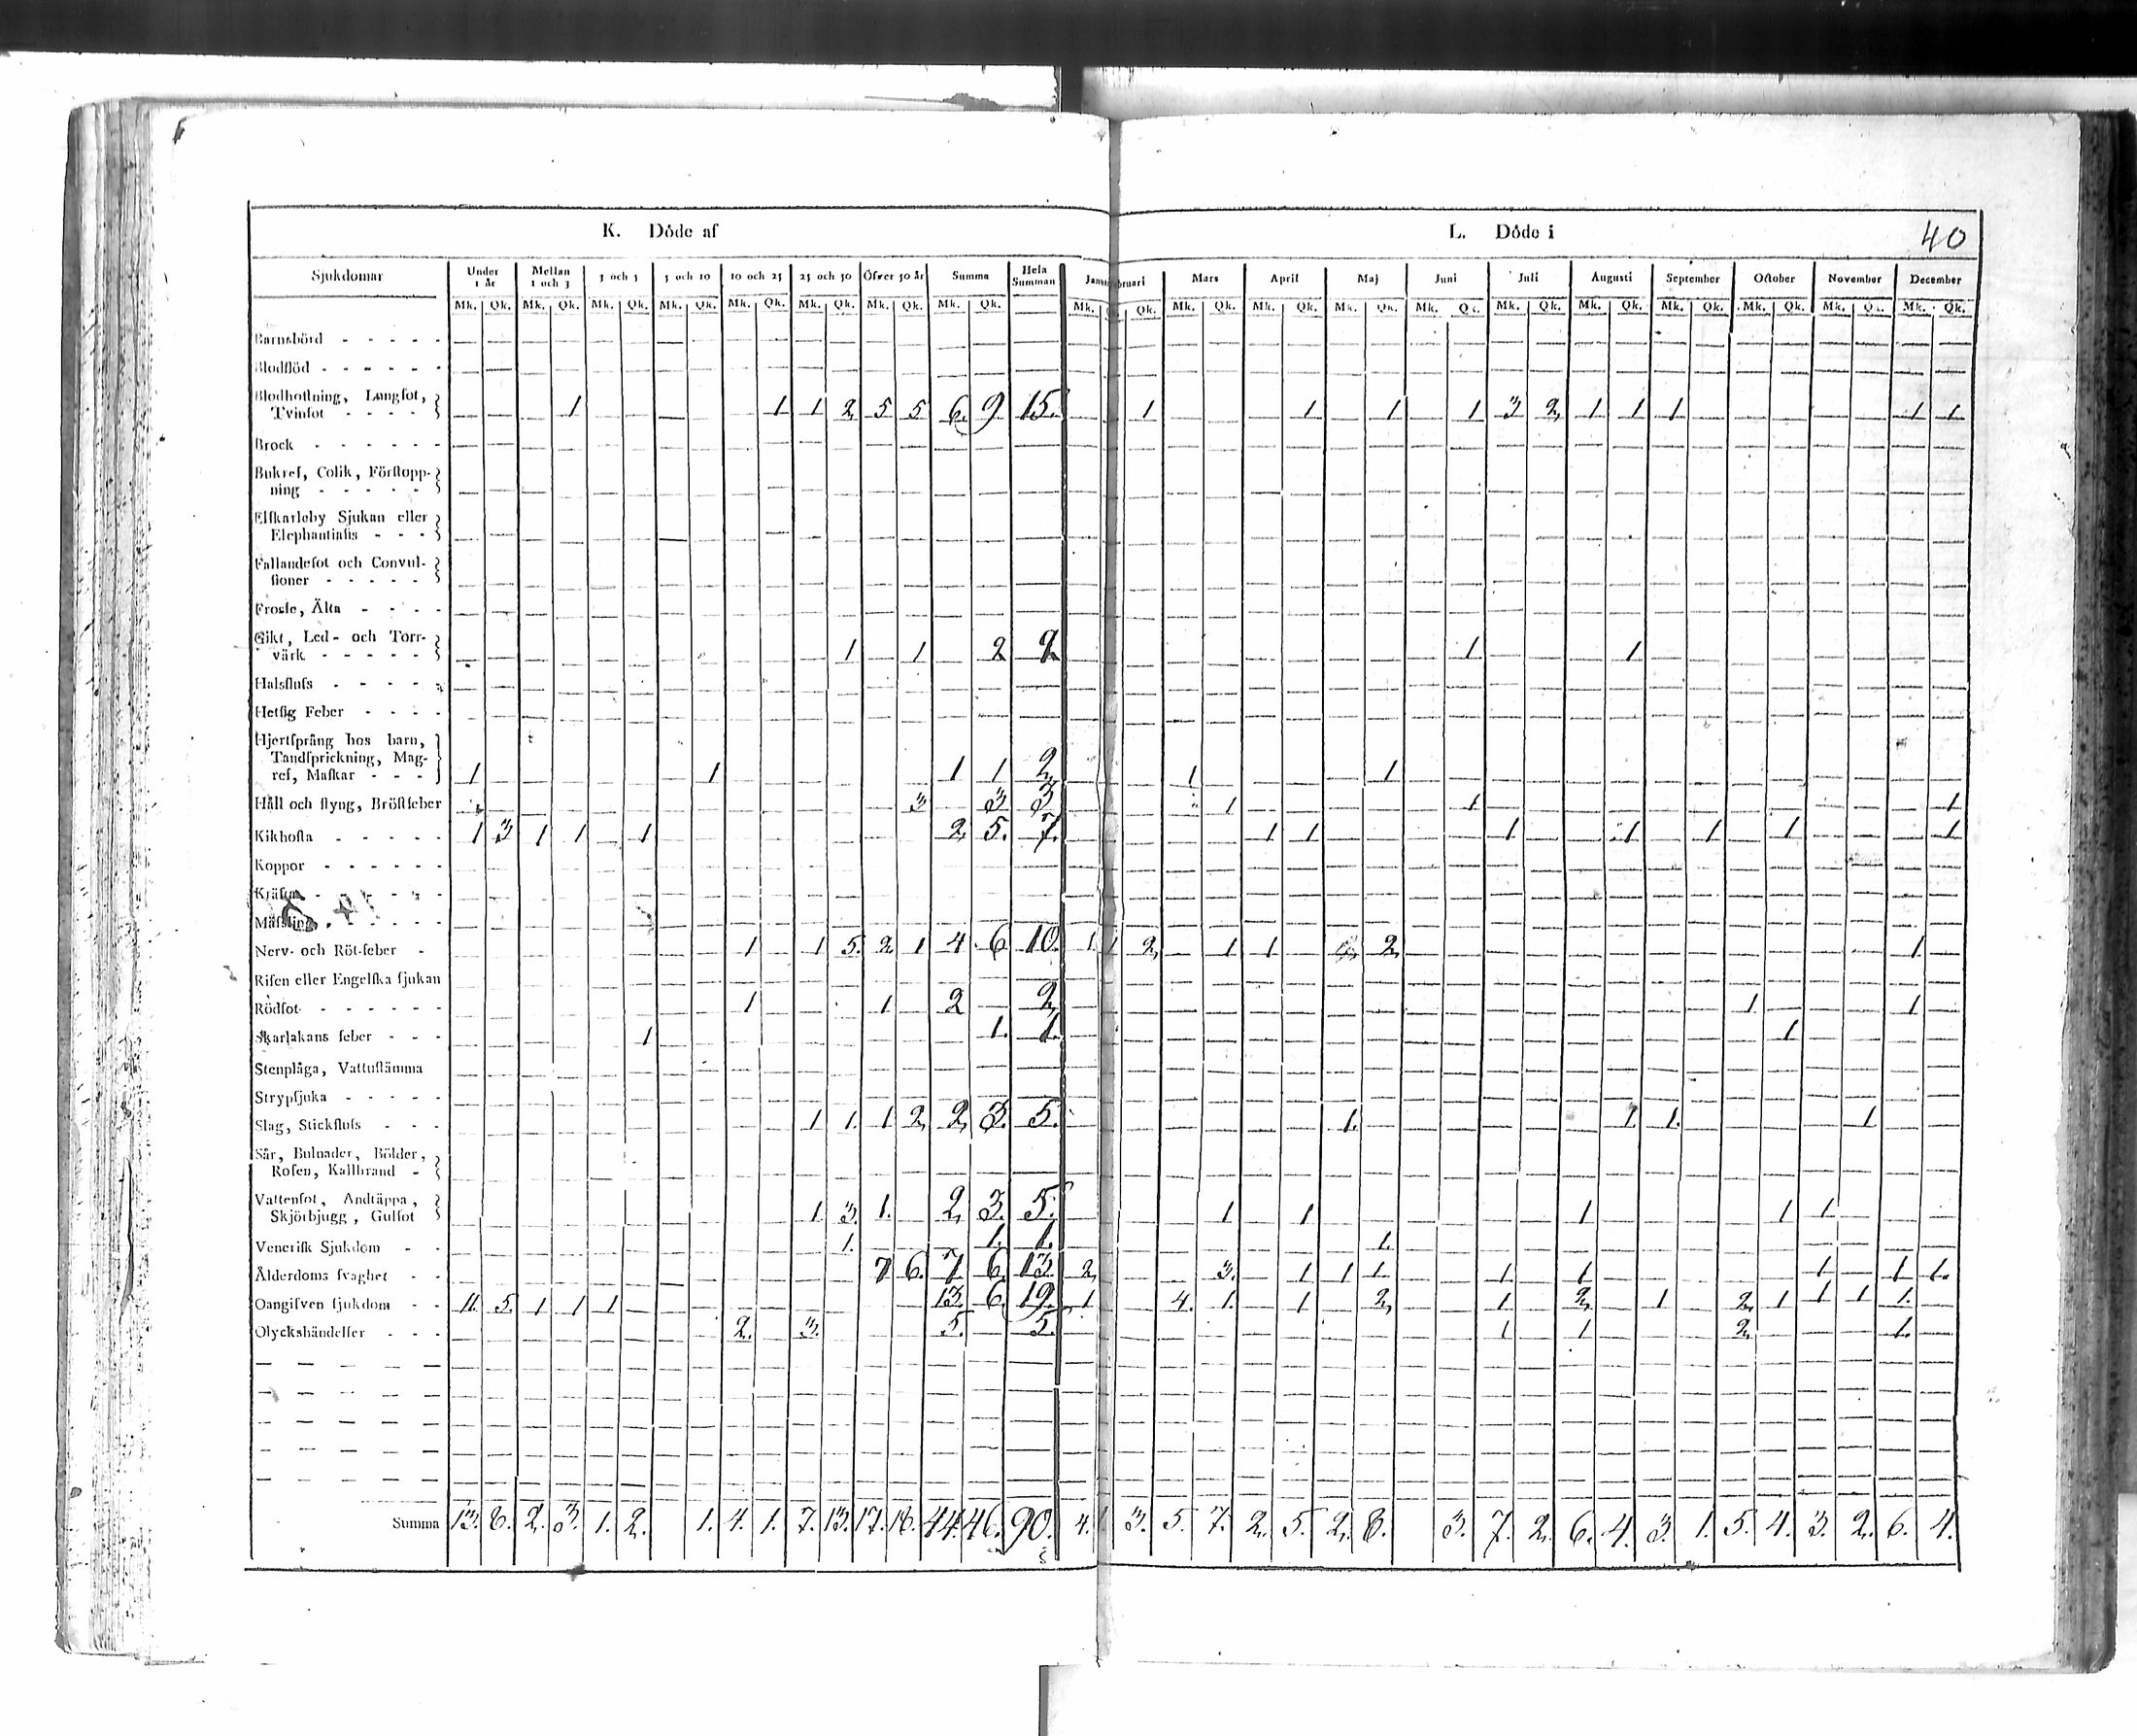 K. Döde af
L. Döde i
40
Sjukdomar Under 1 år Mellan 1 och 3 3 och 5 5 och 10 10 och 25 25 och 50 Öfver 50 år Summa Hela Summan Mars April Maj Juni Juli Augusti September October November December
Mk. Qk. Mk. Qk. Mk. Qk. Mk. Qk. Mk. Qk. Mk. Qk. Mk. Qk. Mk. Qk. Mk. Qk. Mk. Qk. Mk. Qk. Mk. Qk. Mk. Qk. Mk. Qk. Mk. Qk. Mk. Qk. Mk. Qk. Mk. Qk. Mk. Qk.
Barnsbörd
Blodflöd
Blodhostning, Lungsot,
Tvinsot 1 1 1 2 5 5 6 9 15. 1 1 1 1 3 2 1 1 1 1 1
Brock
Bukref, Colik, Förstopp-
ning
Elfkarleby Sjukan eller
Elephantiasis
Fallandesot och Convul-
sioner
Frossa, Älta
Gikt, Led- och Torr-
värk 1 1 2 2 1 1
Halsfluss
Hetsig Feber
Hjertsprång hos barn,
Tandsprickning, Mag-
ref, Maskar 1 1 1 1 2 1 1
Håll och styng, Bröstfeber 3 3 3 1 1 1
Kikhosta 1 3 1 1 1 2 5. 7. 1 1 1 1 1 1 1
Koppor
Kräfta
Mässling
Nerv- och Röt-feber 1 1 5. 2 1 4 6 10. 1. 1 2 1 1 2 1.
Risen eller Engelska sjukan
Rödsot 1 1 2 2 1 1
Skarlakans feber 1 1. 1. 1
Stenplåga, Vattustämma
Strypsjuka
Slag, Stickfluss 1 1. 1 2 2 3. 5. 1. 1 1. 1
Sår, Bulnader, Bölder,
Rosen, Kallbrand
Vattensot, Andtäppa,
Skjörbjugg, Gulsot 1. 3. 1. 2 3. 5. 1 1 1 1 1
Venerisk Sjukdom 1. 1. 1. 1.
Ålderdoms svaghet 7 6. 7 6 13. 2 3. 1 1 1 1 1 1 1 1.
Oangifven sjukdom 11. 5. 1 1 1 13. 6. 19. 1 4. 1. 1 2 1 2 1 2 1 1 1 1.
Olyckshändelser 2. 3. 5. 5. 1 1 2 1.
Summa 13. 8. 2. 3. 1. 2. 1. 4. 1. 7. 13. 17. 18. 44. 46. 90. 4. 1 3. 5. 7. 2. 5. 2. 8. 3. 7. 2. 6. 4. 3. 1. 5. 4. 3. 2. 6. 4.